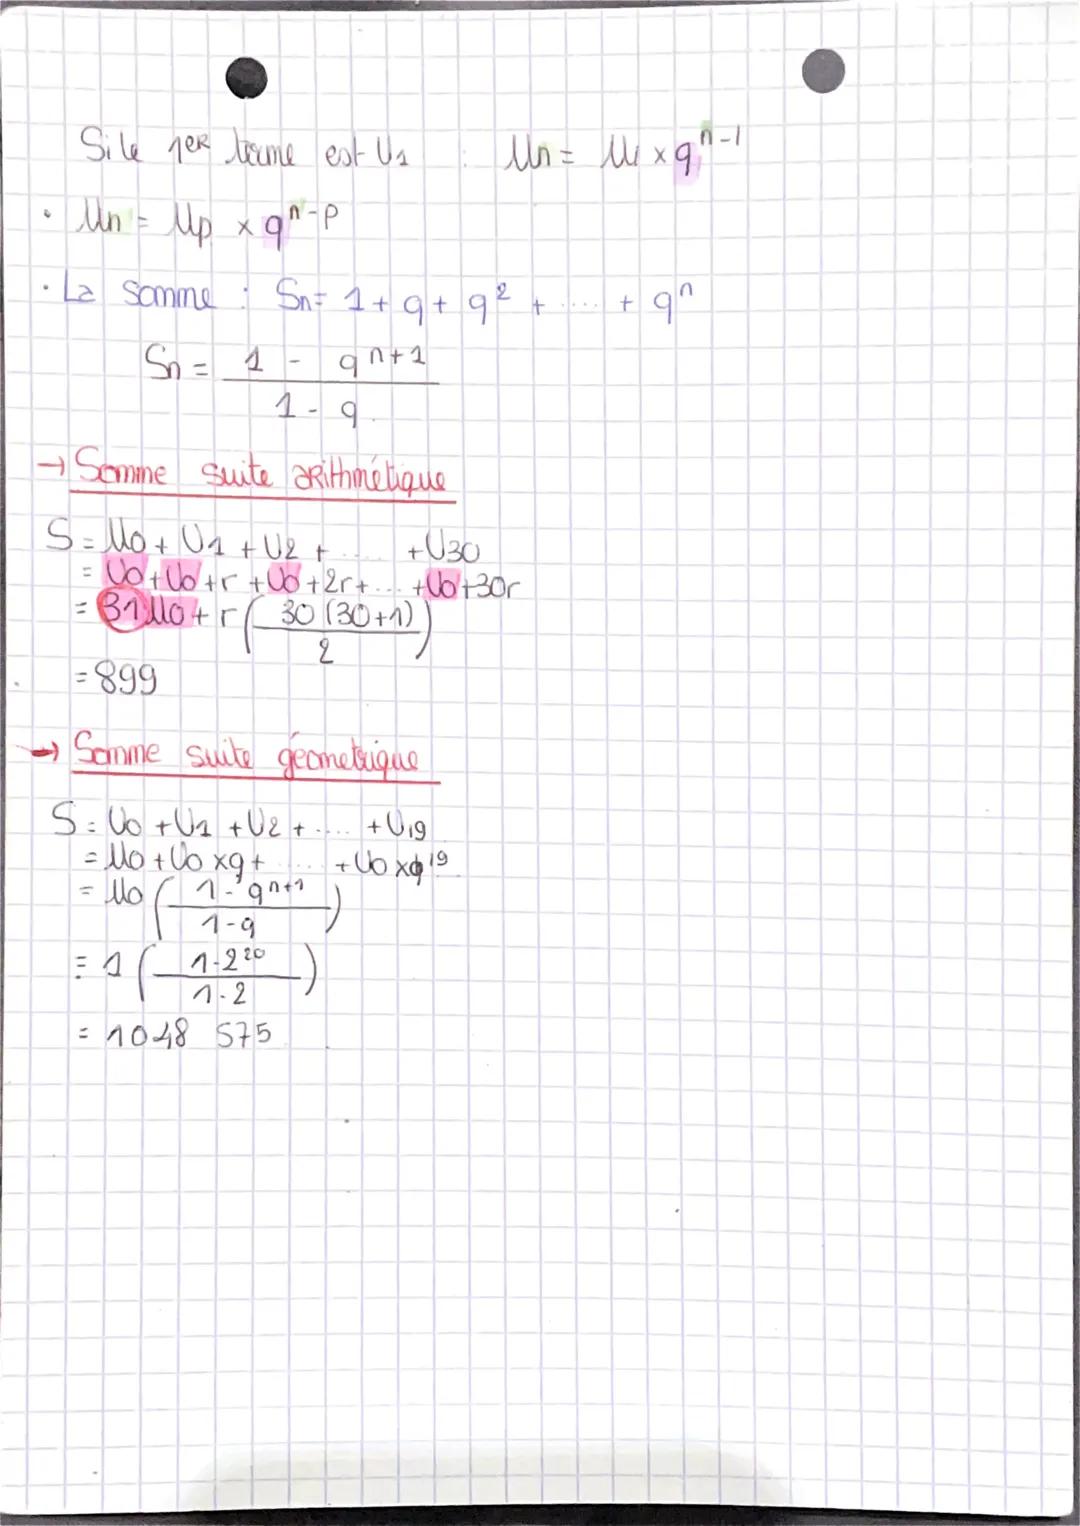 Si le 1er terme est U1 : Un = U1 × q^n-1
• Un = Up × q^n-p
• La somme : Sn = 1 + q + q² + ..... + q^n
Sn = (1 - q^n+1) / (1 - q)
→ Somme suite arithmétique
S = U0 + U1 + U2 + ..... + U30
= U0 + U0 + r + U0 + 2r + ... + U0 + 30r
= 31U0 + r (30 (30+1) / 2)
= 899
→ Somme suite géometrique
S = U0 + U1 + U2 + ..... + U19
= U0 + U0 × q + ..... + U0 × q^19
= U0 (1 - q^n+1 / 1 - q)
= 1 (1 - 2^20 / 1 - 2)
= 1048 575